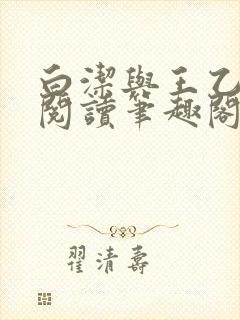 白潔與王乙
閱讀筆趣閣
翟清壽